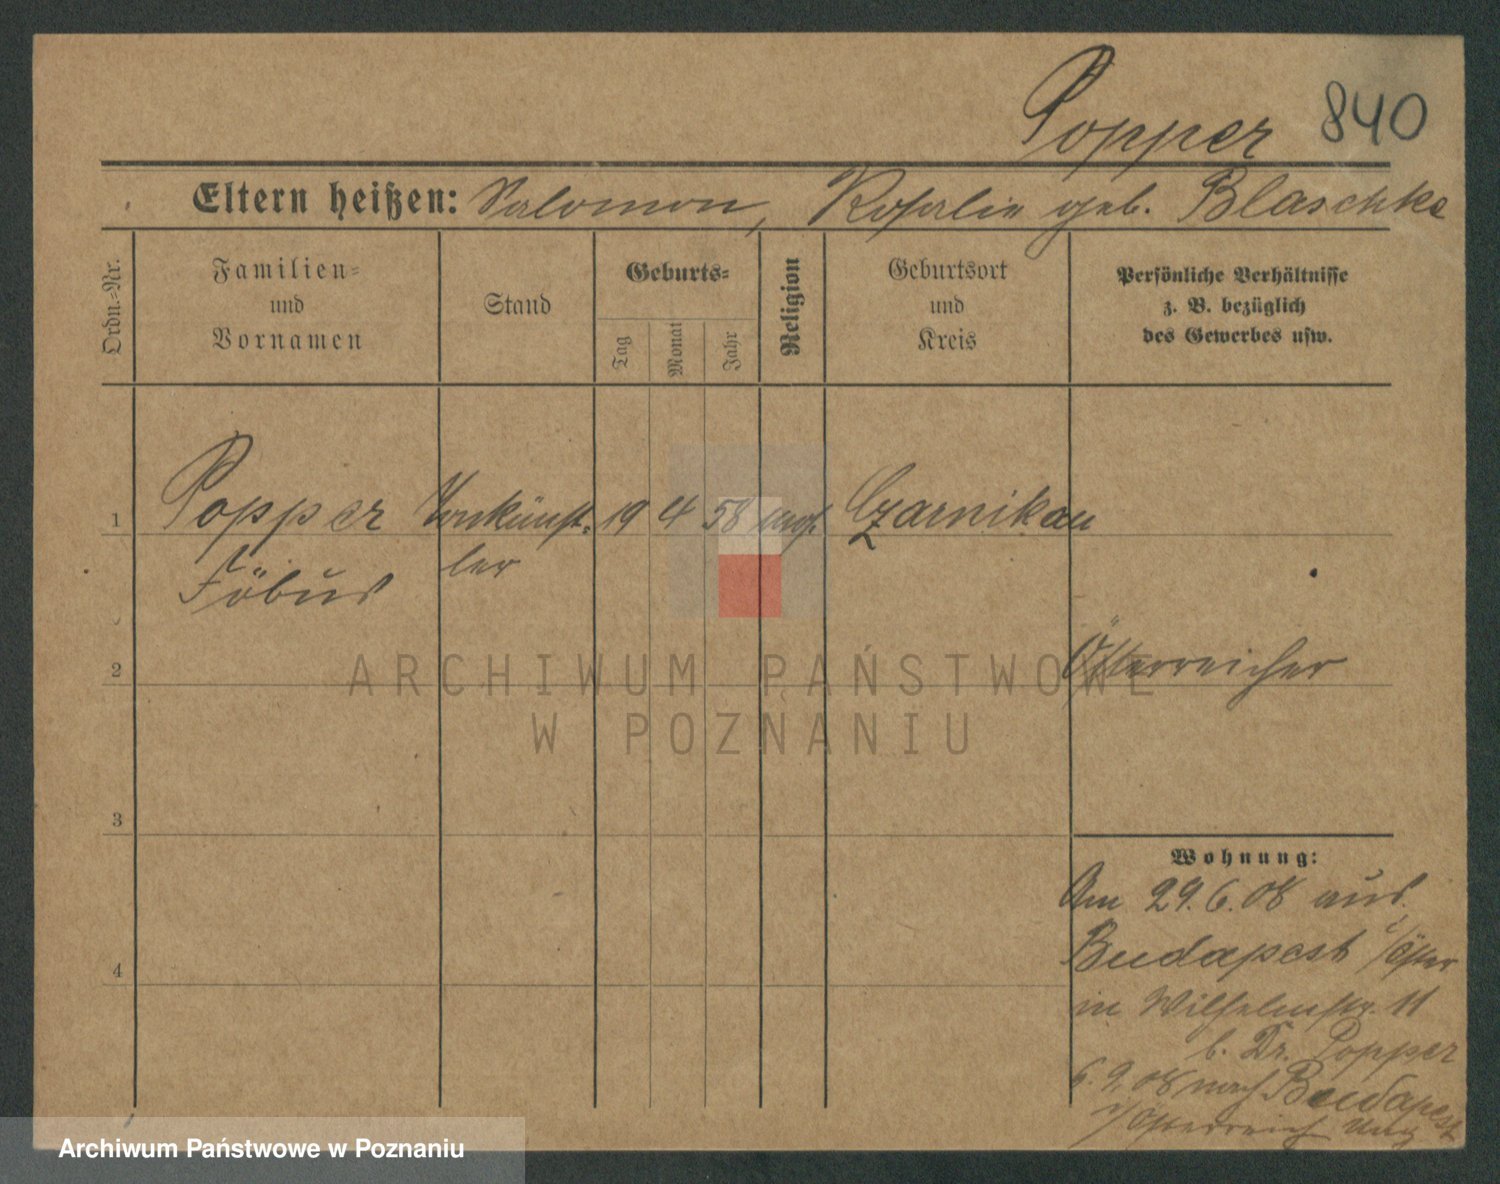 Popper 840
Eltern heißen: Salomon, Rosalie geb. Blaschke
Ordn.=Nr.
Familien=
und
Vornamen
Stand
Geburts=
Tag
Monat
Jahr
Religion
Geburtsort
und
Kreis
Persönliche Verhältnisse
z. B. bezüglich
des Gewerbes usw.
1 Popper 19 4 58 mos. Czarnikau
ler
Föbus
2 Österreicher
ARCHIWUM PAŃSTWOWE
W POZNANIU
3
Wohnung:
Am 29.6.08 aus
Budapest i/Öster
4
in Wilhelmstr. 11
b. Dr. Popper
6.9.08 nach Budapest
i/Österreich Ung
Archiwum Państwowe w Poznaniu